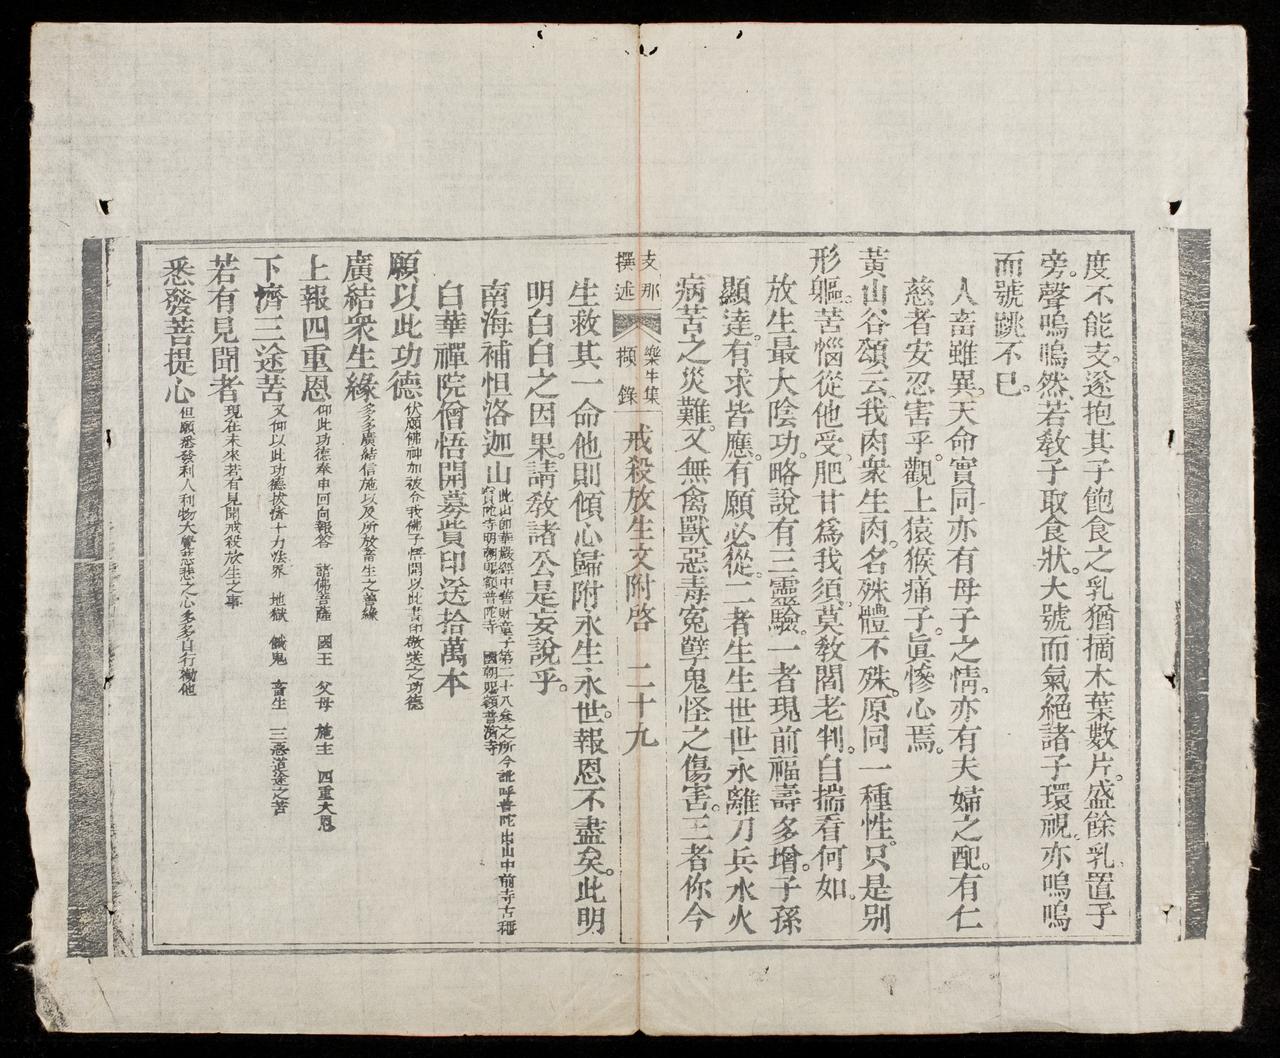 度不能支。遂抱其子飽食之乳。猶摘木葉數片。盛餘乳置子
旁。聲嗚嗚然。若教子取食狀。大號而氣絕。諸子環視。亦嗚嗚
而號跳不已。
人畜雖異。天命實同。亦有母子之情。亦有夫婦之配。有仁
慈者安忍害乎。觀上猿猴痛子。眞慘心焉。
黃山谷頌云。我肉衆生肉。名殊體不殊。原同一種性。只是别
形軀。苦惱從他受。肥甘爲我須。莫教閻老判。自揣看何如。
放生最大陰功。略說有三靈驗。一者現前福壽多增。子孫
顯達。有求皆應。有願必從。二者生生世世永離刀兵水火
病苦之災難。又無禽獸惡毒寃孽鬼怪之傷害。三者你今
支那
撰述
樂生集
擷錄
戒殺放生文附啓 二十九
生救其一命。他則傾心歸附。永生永世。報恩不盡矣。此明
明白白之因果。請教諸公是妄說乎。
南海補怛洛迦山
此山卽華嚴經中善財童子第二十八叅之所今訛呼普陀山山中前寺古稱
寶陀寺明朝賜額普陀寺 國朝賜額普濟寺
白華禪院僧悟開募貲印送拾萬本
願以此功德伏願佛神加被令我佛子悟開以此書印敬送之功德
廣結衆生緣多多廣結信施以及所放畜生之善緣
上報四重恩仰此功德奉申回向報答 諸佛菩薩 國王 父母 施主 四重大恩
下濟三途苦又仰以此功德拔擠十力法界 地獄 餓鬼 畜生 三惡道途之苦
若有見聞者現在未來若有見聞戒殺放生之事
悉發菩提心但願悉發利人利物大覺慈悲之心多多自行勸他